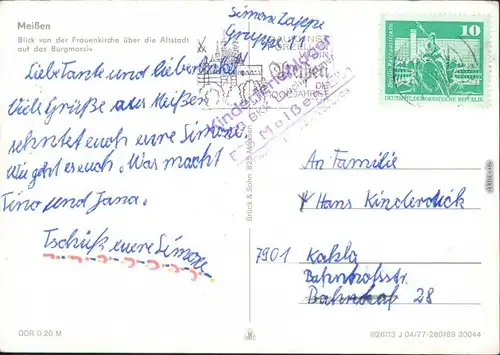 Meißen
Blick von der Frauenkirche über die Altstadt
auf das Burgmassiv
Simone Zappe
Gruppe
Liebe Tante und lieber Onkel
Viele Grüße aus Meißen
sehntet euch eure Simone.
Wie geht es euch. Was macht
Tino und Jana.
Tschüß eure Simone
Kinderferienlager
BKK
Meißen
1000 JAHRE
Brück & Sohn 825 Meißen
10
DEUTSCHE DEMOKRATISCHE REPUBLIK
An Familie
Hans Kinderdick
7901 Kaxla
Bahnhofsstr.
Bahnhof 28
DDR 0,20 M
III/26/13 J 04/77-280189 30044